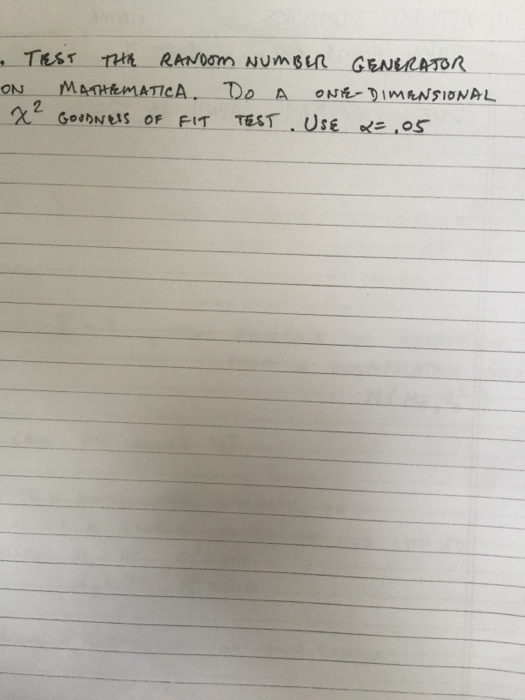 . TEST THE RANDOM NUMBER GENERATOR
ON MATHEMATICA. DO A ONE-DIMENSIONAL
χ² GOODNESS OF FIT TEST. USE α=.05